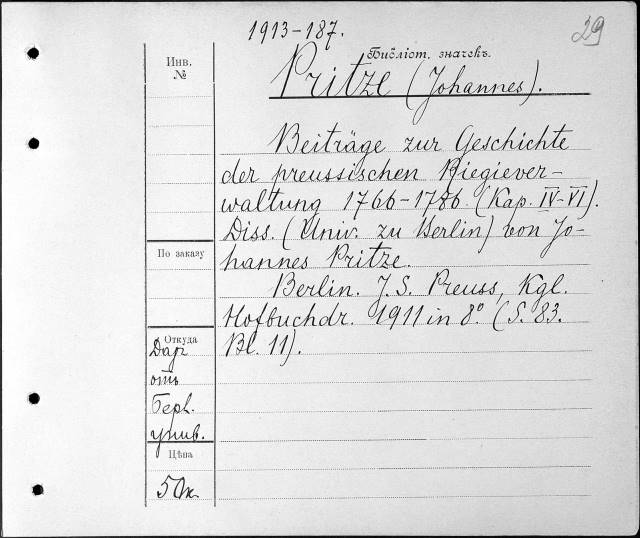 1913-187.
29
Инв.
№
Библіот. значекъ.
Pritze (Johannes).
Beiträge zur Geschichte
der preussischen Regiever-
waltung 1766-1786. (Kap. IV-VI).
Diss. (Univ. zu Berlin) von Jo-
hannes Pritze.
Berlin. J. S. Preuss, Kgl.
Hofbuchdr. 1911 in 8° (S. 83.
Bl. 11).
По заказу
Откуда
Даръ
отъ
Берл.
унив.
Цѣна
50к